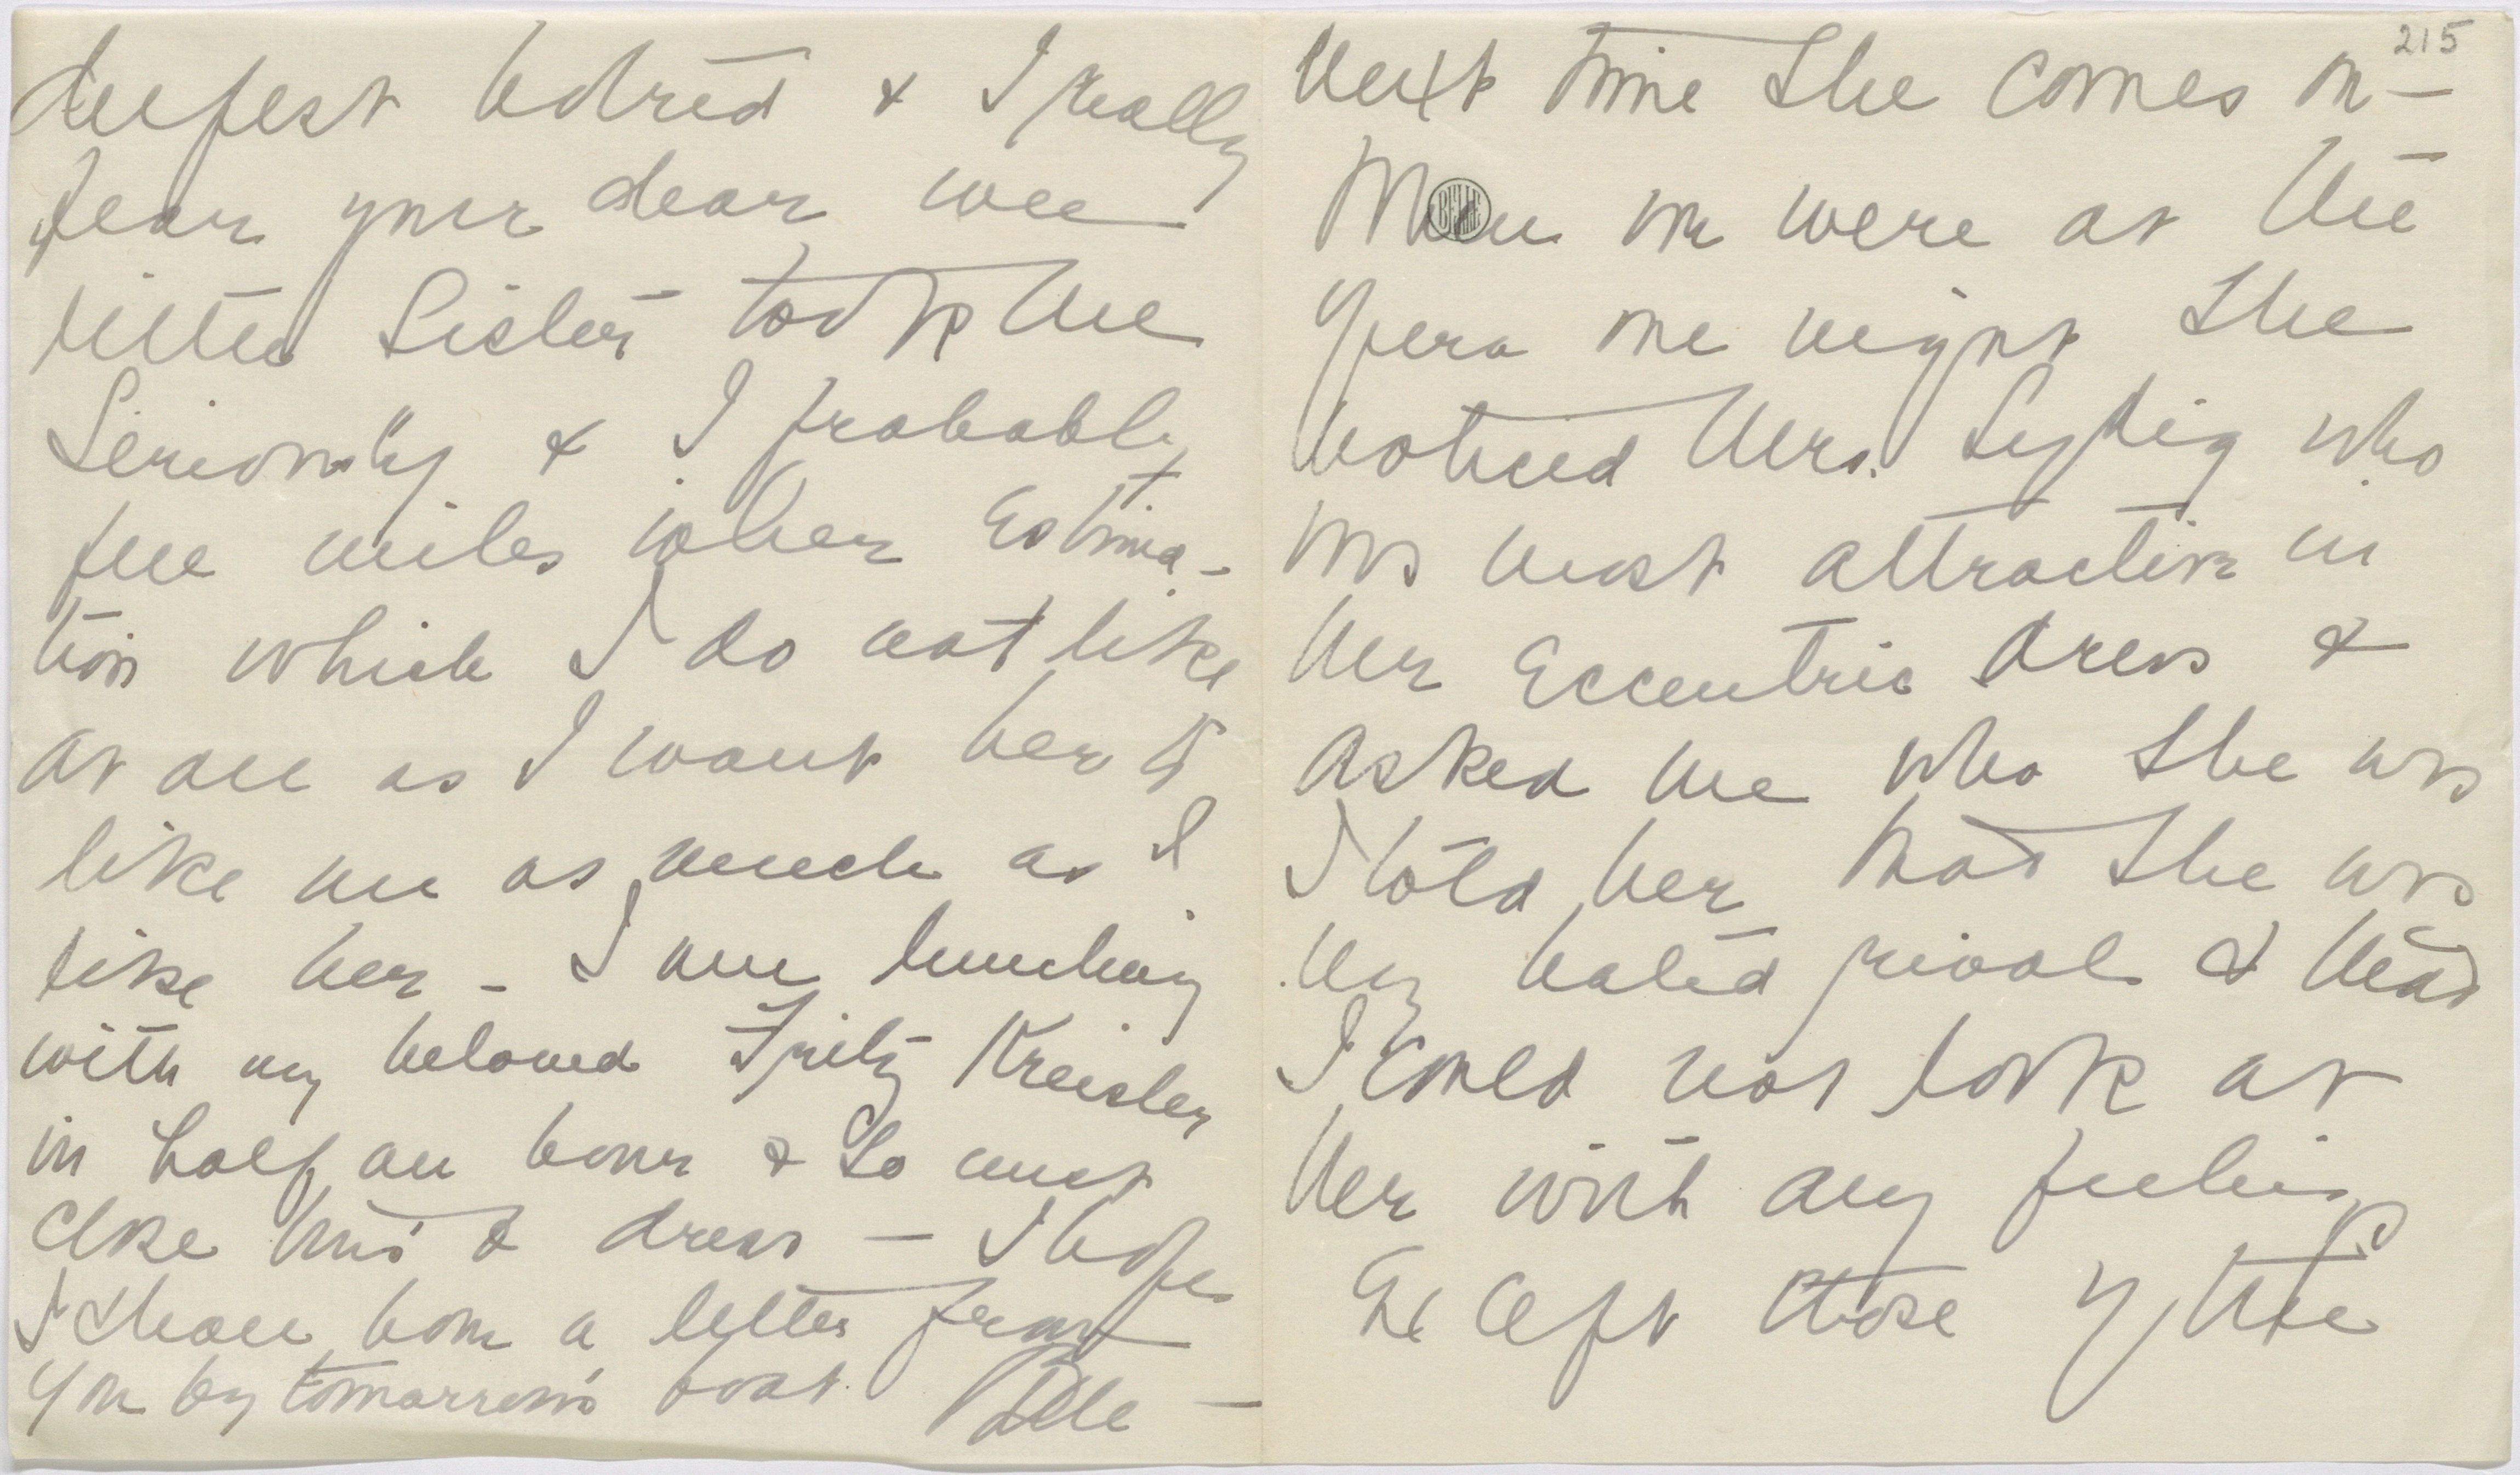 deepest hatred & I really
fear your dear wee
little Sister took me
Seriously & I probably
fell miles in her Estima-
tion which I do not like
at all as I want her to
like me as much as I
like her - I am lunching
with my beloved Fritz Kreisler
in half an hour & so must
close this & dress — I hope
I shall have a letter from
you by tomorrow's boat. Belle —
215
next time she comes on —
When we were at the
Opera one night she
noticed Mrs. Lydig who
was most attractive in
her Eccentric dress &
asked me who she was
I told her that she was
my hated rival & that
I could not look at
her with any feelings
Except those of the
BELLE